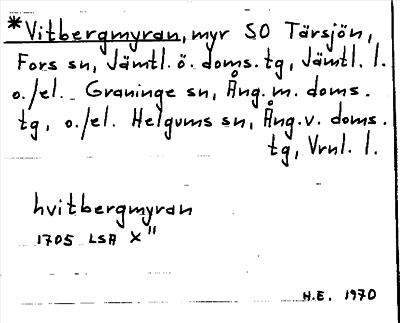 *Vitbergmyran, myr SO Tärsjön,
Fors sn, Jämtl.ö. doms.tg, Jämtl. l.
o./el. Graninge sn, Ång.m. doms.
tg, o./el. Helgums sn, Ång.v. doms.
tg, Vrnl. l.
hvitbergmyran
1705 LSA X"
H.E. 1970